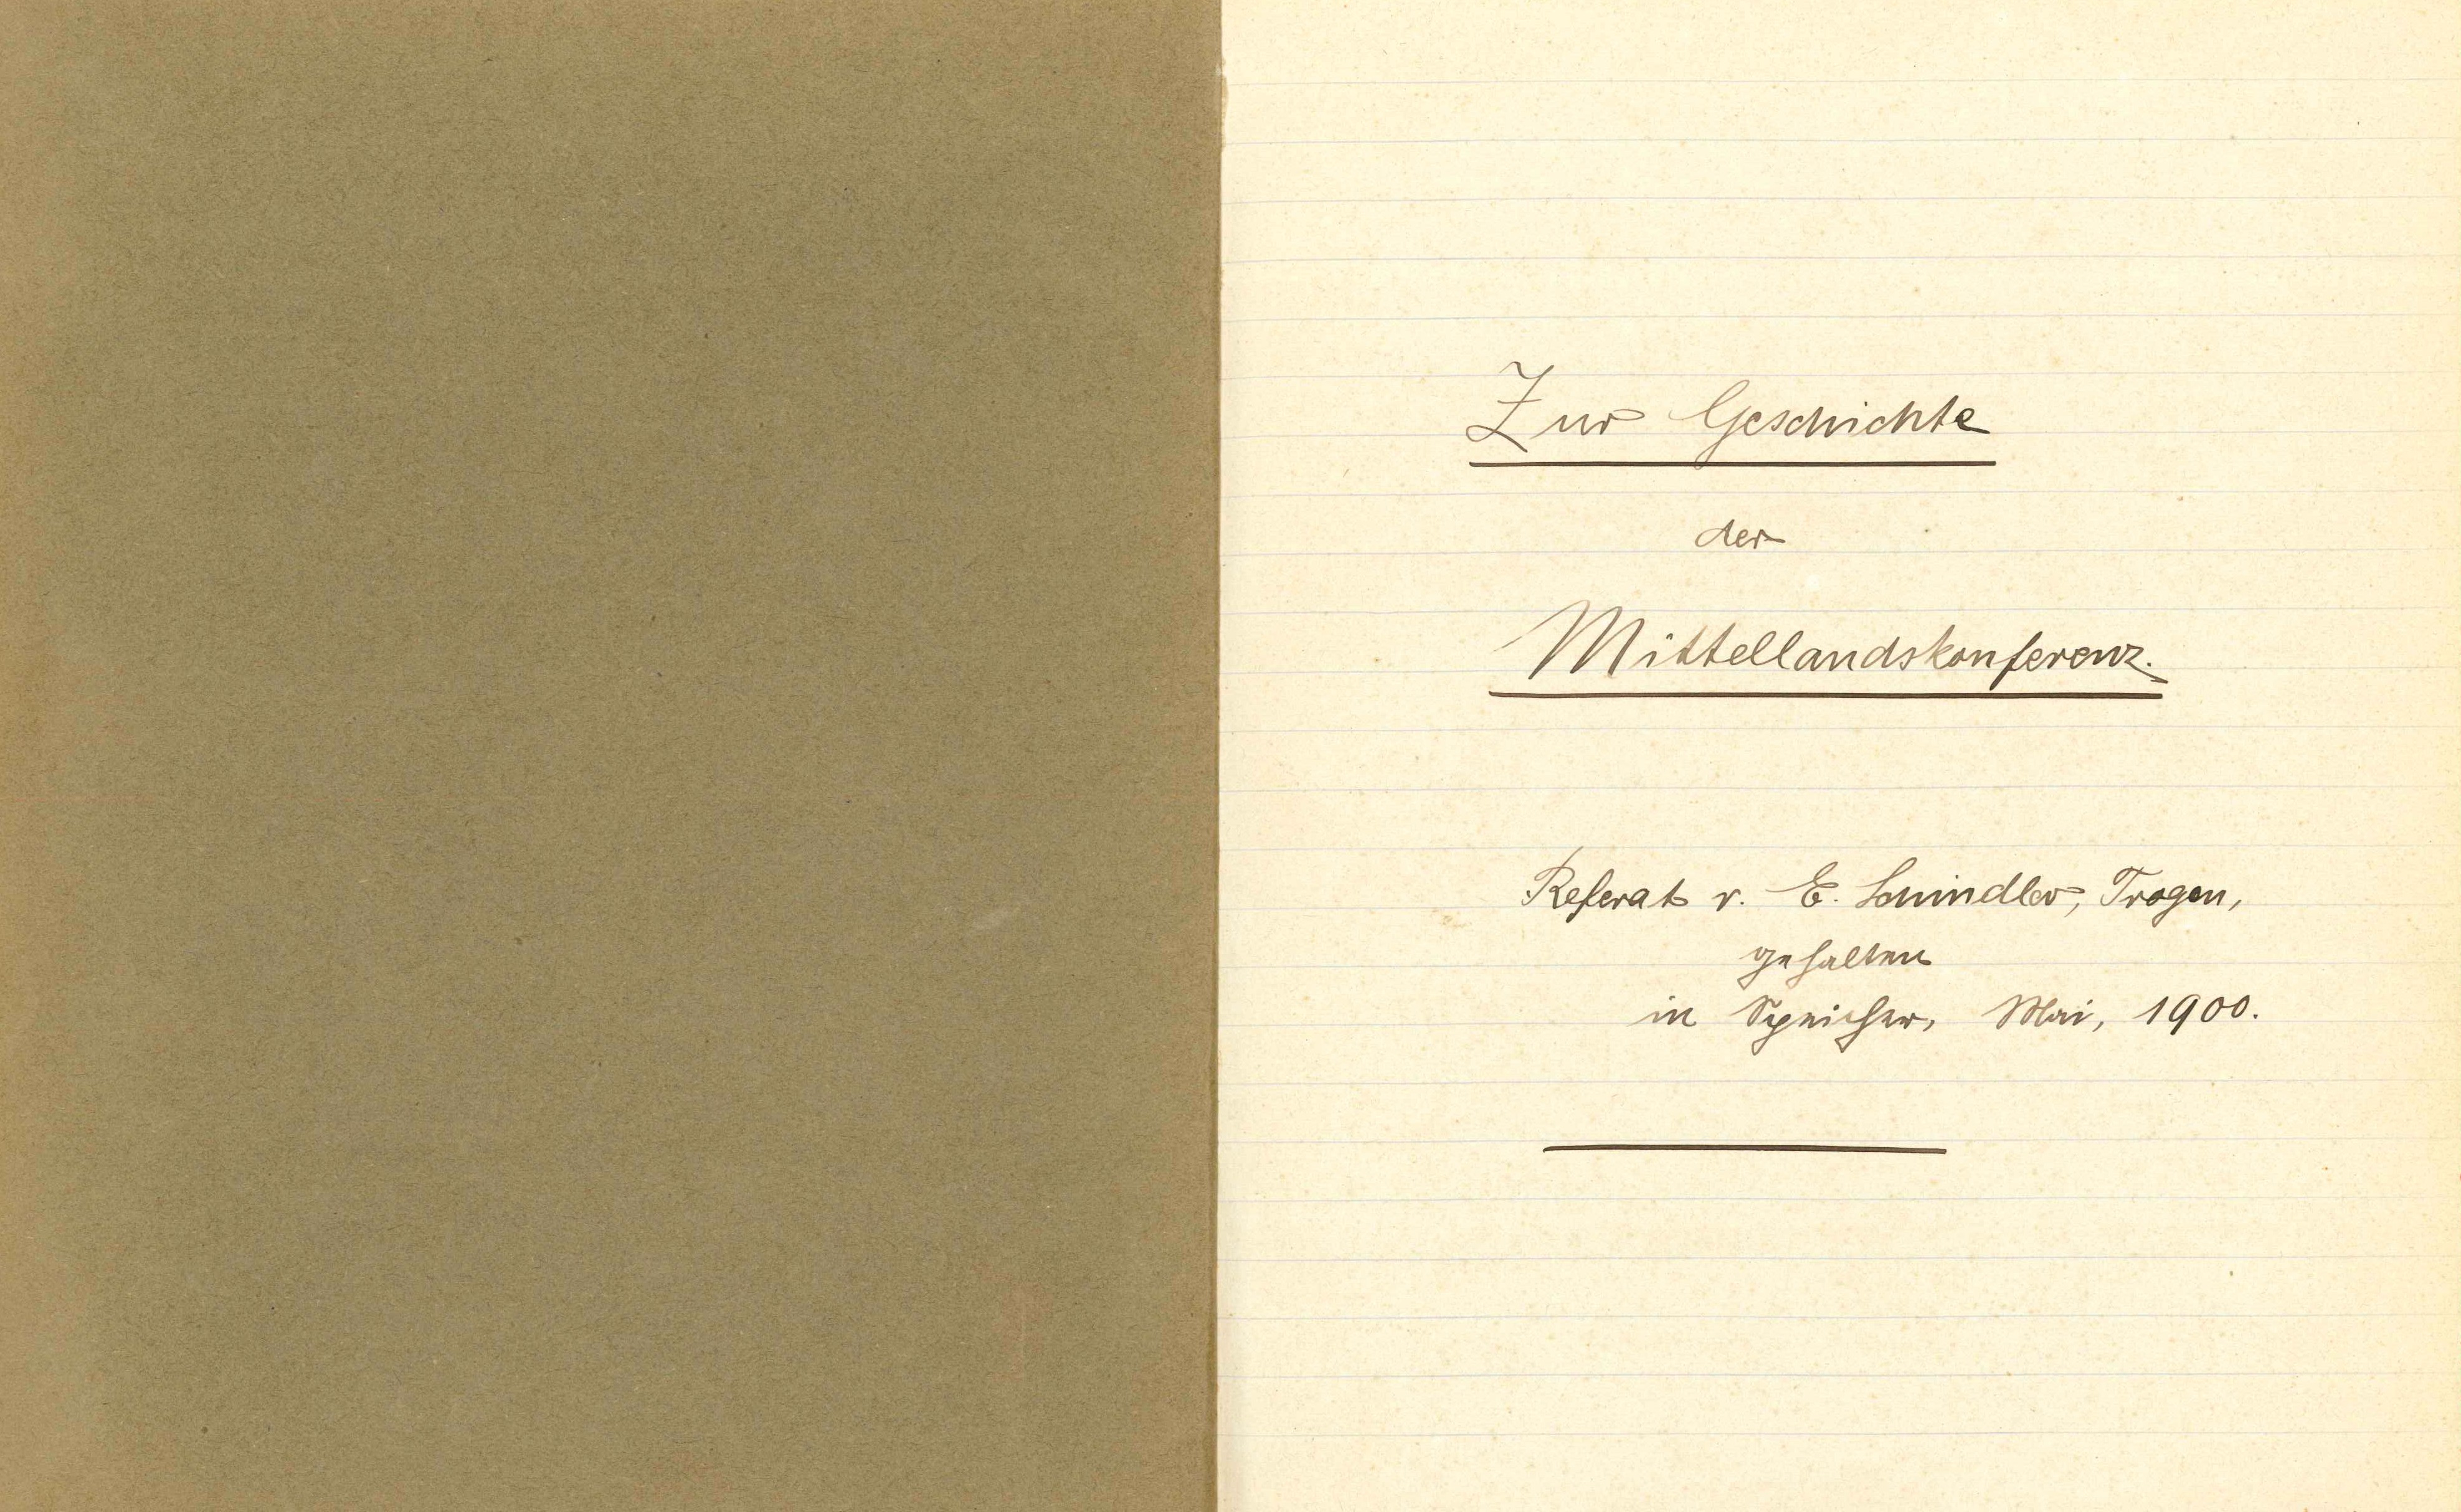 Zur Geschichte
der
Mittellandskonferenz.
Referat v. E. Schindler, Trogen,
gehalten
in Speicher, Mai, 1900.